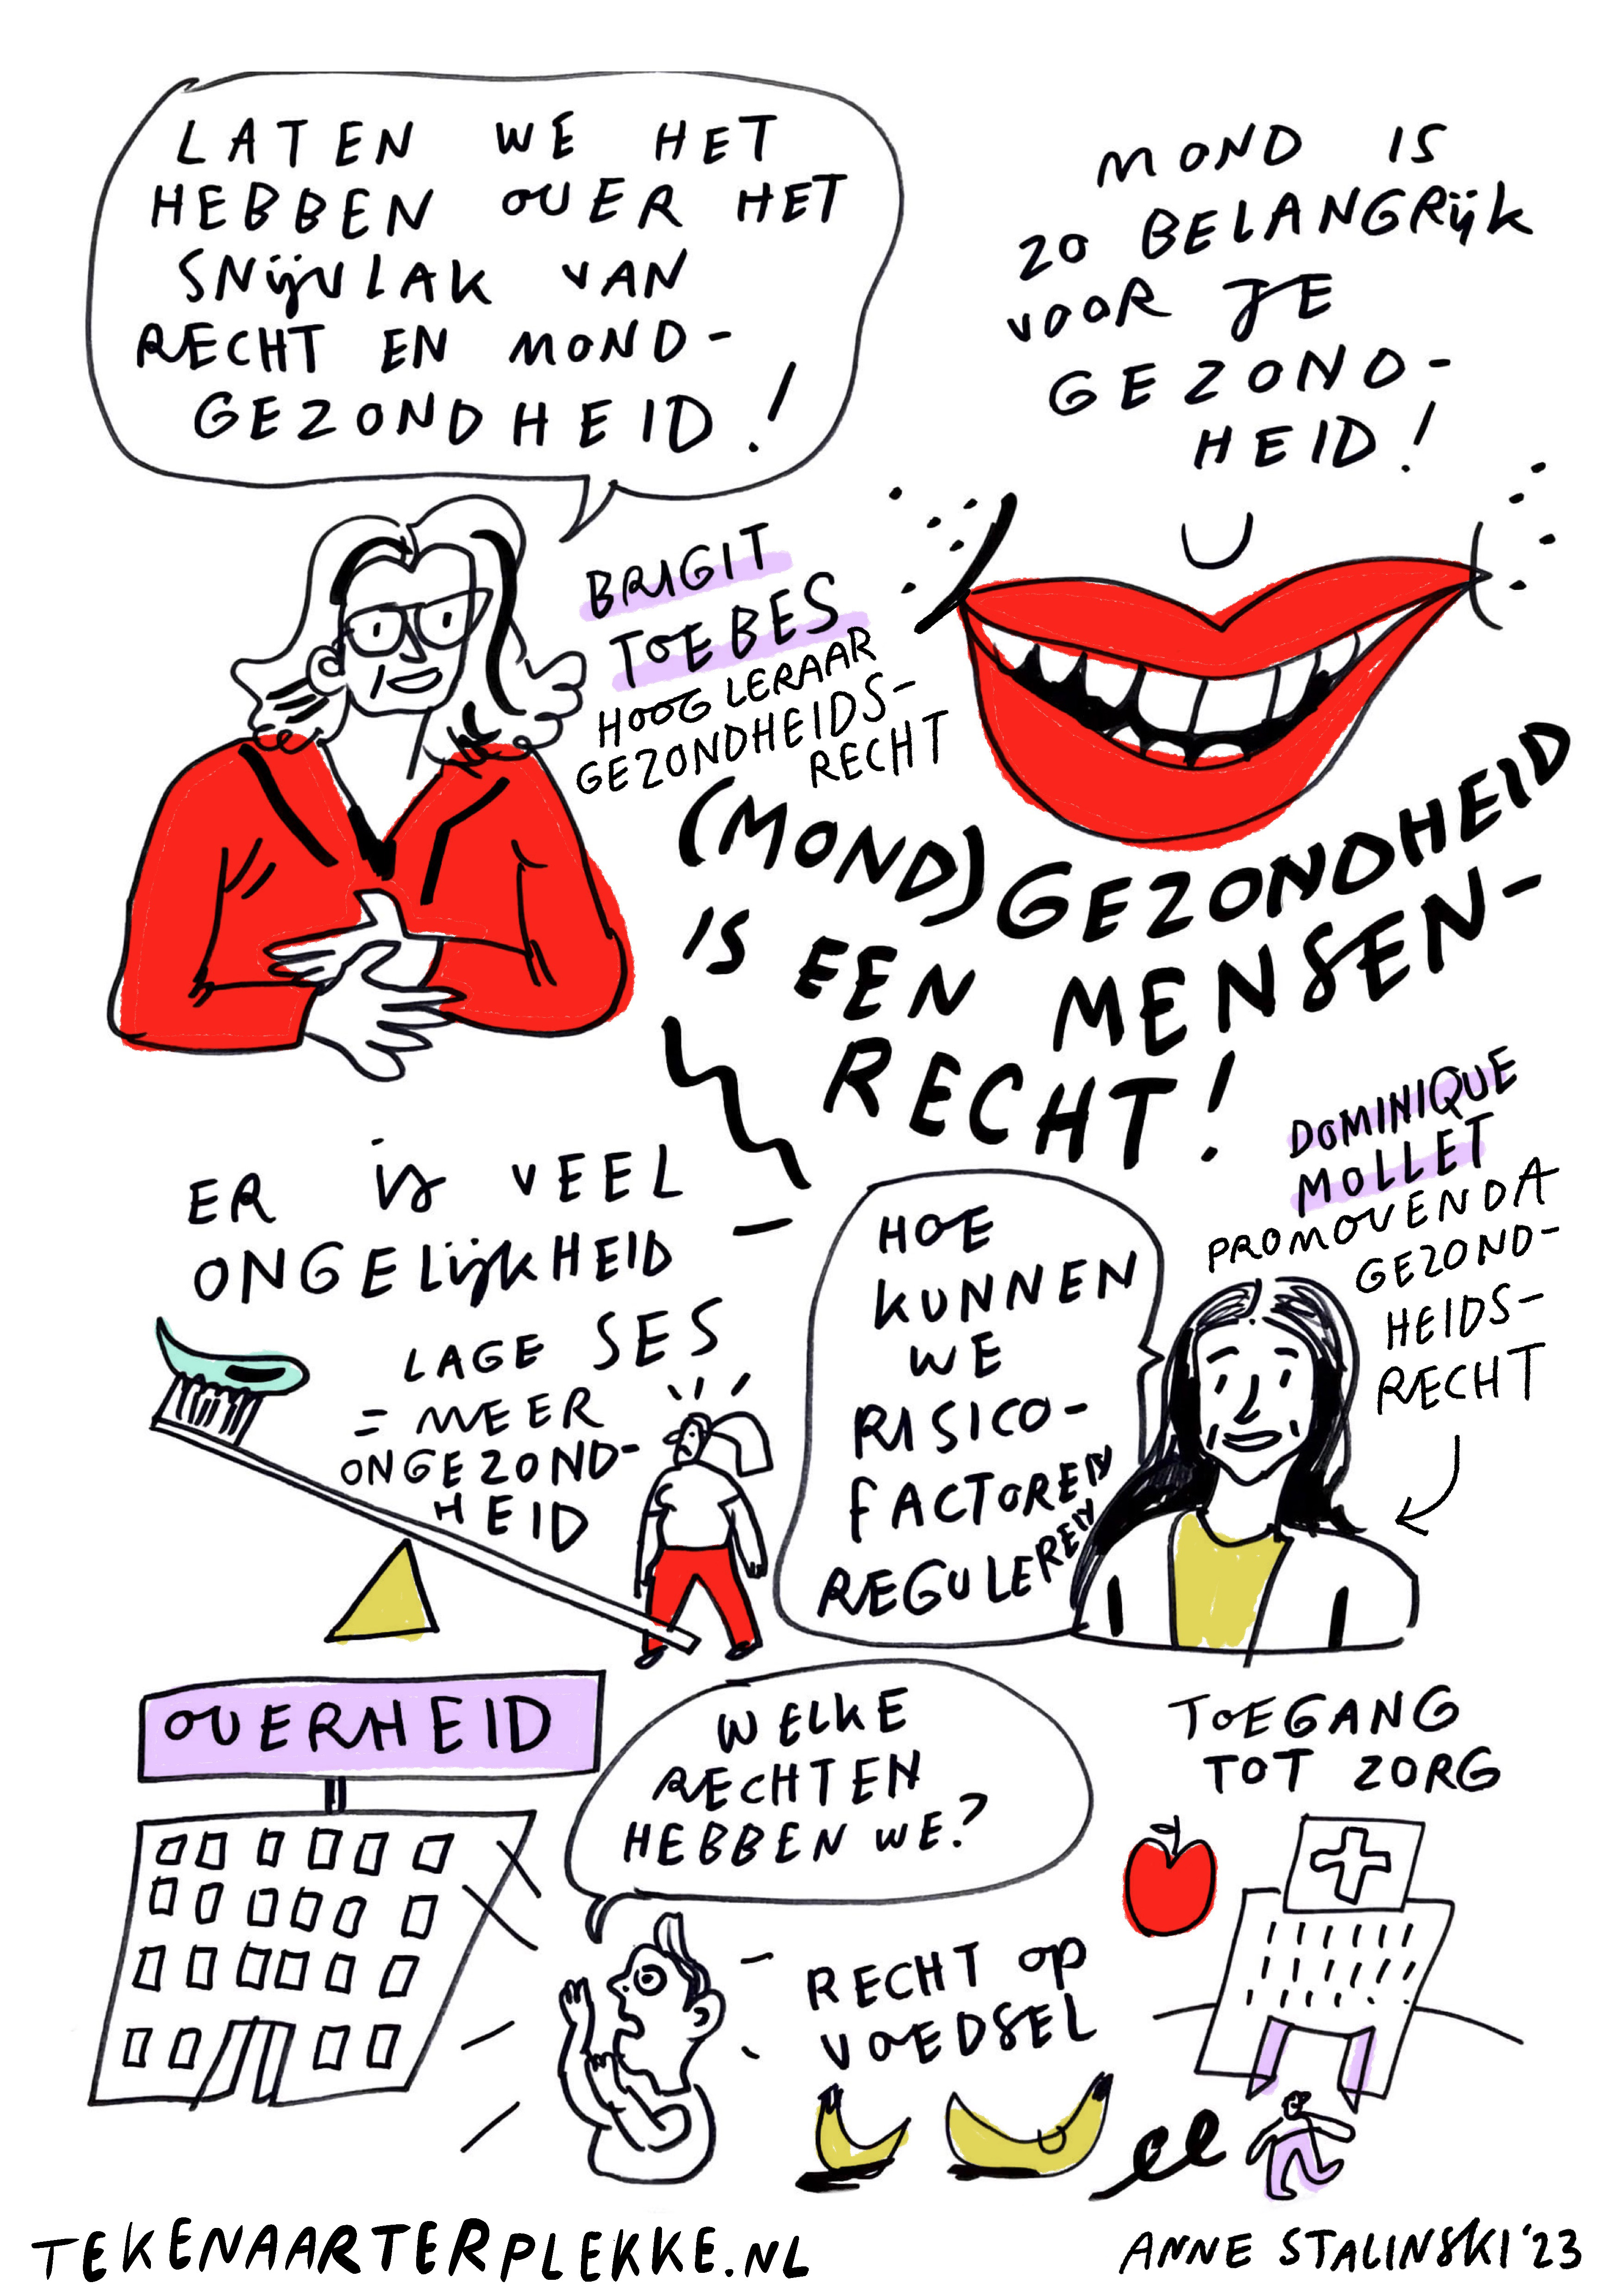 LATEN WE HET
HEBBEN OVER HET
SNijVLAK VAN
RECHT EN MOND-
GEZONDHEID!
MOND IS
ZO BELANGRijk
VOOR JE
GEZOND-
HEID!
BRIGIT
TOEBES
HOOGLERAAR
GEZONDHEIDS-
RECHT
(MOND)GEZONDHEID
IS EEN MENSEN-
RECHT!
ER is VEEL
ONGELijkHEID
LAGE SES
= MEER
ONGEZOND-
HEID
HOE
KUNNEN
WE
RISICO-
FACTOREN
REGULEREN
DOMINIQUE
MOLLET
PROMOVENDA
GEZOND-
HEIDS-
RECHT
OVERHEID
WELKE
RECHTEN
HEBBEN WE?
TOEGANG
TOT ZORG
RECHT op
VOEDSEL
TEKENAARTERPLEKKE.NL
ANNE STALINSKI '23